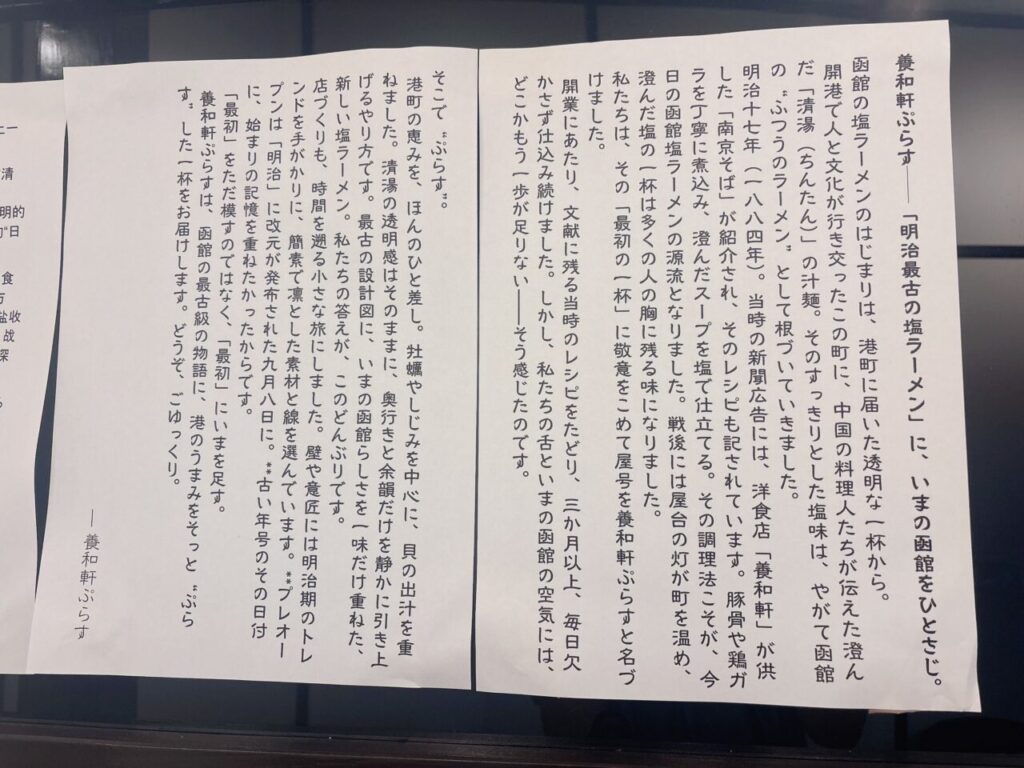 養和軒ぷらす――「明治最古の塩ラーメン」に、いまの函館をひとさじ。
函館の塩ラーメンのはじまりは、港町に届いた透明な一杯から。
開港で人と文化が行き交ったこの町に、中国の料理人たちが伝えた澄ん
だ「清湯（ちんたん）」の汁麺。そのすっきりとした塩味は、やがて函館
の“ふつうのラーメン”として根づいていきました。
明治十七年（一八八四年）。当時の新聞広告には、洋食店「養和軒」が供
した「南京そば」が紹介され、そのレシピも記されています。豚骨や鶏ガ
ラを丁寧に煮込み、澄んだスープを塩で仕立てる。その調理法こそが、今
日の函館塩ラーメンの源流となりました。戦後には屋台の灯が町を温め、
澄んだ塩の一杯は多くの人の胸に残る味になりました。
私たちは、その「最初の一杯」に敬意をこめて屋号を養和軒ぷらすと名づ
けました。
開業にあたり、文献に残る当時のレシピをたどり、三か月以上、毎日欠
かさず仕込み続けました。しかし、私たちの舌といまの函館の空気には、
どこかもう一歩が足りない――そう感じたのです。
そこで“ぷらす”。
港町の恵みを、ほんのひと差し。牡蠣やしじみを中心に、貝の出汁を重
ねました。清湯の透明感はそのままに、奥行きと余韻だけを静かに引き上
げるやり方です。最古の設計図に、いまの函館らしさを一味だけ重ねた、
新しい塩ラーメン。私たちの答えが、このどんぶりです。
店づくりも、時間を遡る小さな旅にしました。壁や意匠には明治期のトレ
ンドを手がかりに、簡素で凛とした素材と線を選んでいます。**プレオー
プンは「明治」に改元が発布された九月八日に。**古い年号のその日付
に、始まりの記憶を重ねたかったからです。
「最初」をただ模すのではなく、「最初」にいまを足す。
養和軒ぷらすは、函館の最古級の物語に、港のうまみをそっと“ぷら
す”した一杯をお届けします。どうぞ、ごゆっくり。
―養和軒ぷらす
清
明的
“日
食
盐收
战
深